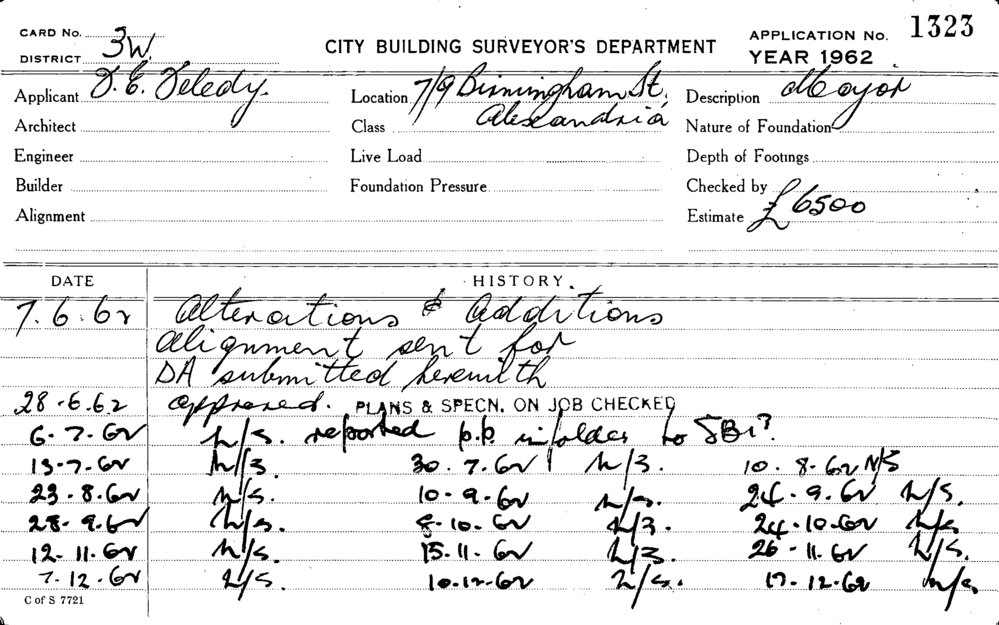 CARD No.
DISTRICT 3W.
CITY BUILDING SURVEYOR'S DEPARTMENT
APPLICATION No. 1323
YEAR 1962
Applicant Location 7/9 Birmingham St, Description Mayor
Architect Class Alexandria Nature of Foundation
Engineer Live Load Depth of Footings
Builder Foundation Pressure Checked by
Alignment Estimate £6500
DATE HISTORY.
7.6.62 Alterations & Additions
Alignment sent for
DA submitted herewith
28-6.62 approved. PLANS & SPECN. ON JOB CHECKED
6-7-62 N/S. reported p.p. in folder to
13-7-62 N/S. 30.7.62 N/S. 10.8-62 N/S
23-8.62 N/S. 10-9-62 N/S. 24-9.62 N/S.
28-9.62 N/S. 8-10.62 N/S. 24-10-62 N/S
12-11.62 N/S. 15.11-62 N/S. 26-11.62 N/S.
7-12.62 N/S. 10.12-62 N/S. 17-12.62 N/S
C of S 7721